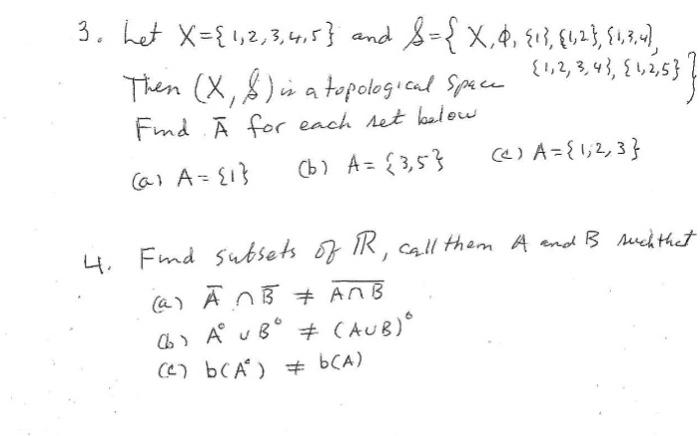 3. Let X={1,2,3,4,5} and S={X,Φ,{1},{1,2},{1,3,4},
{1,2,3,4},{1,2,5}}
Then (X,S) is a topological space
Find Ā for each set below
(a) A={1} (b) A={3,5} (c) A={1,2,3}
4. Find subsets of ℝ, call them A and B such that
(a) A̅ ∩ B̅ ≠ A̅∩̅B̅
(b) A° ∪ B° ≠ (A∪B)°
(c) b(A°) ≠ b(A)